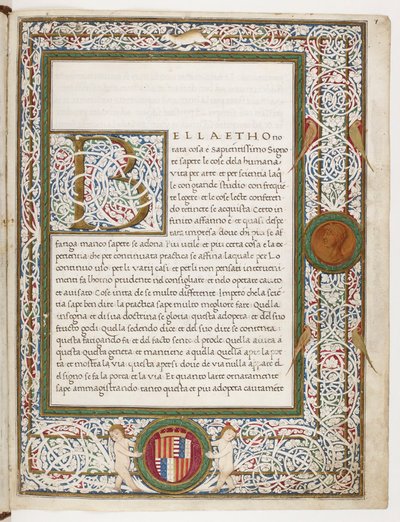 BELLA ET HO no
rata cosa e Sapientissimo Signo
re sapere le cose dela humana
vita per arte et per scientia laq
le con grande studio con freque
te legere et le cose lecte conferen
do retinere se acquista Certo in
finito affanno e et quasi despe
rata impresa dove chi piu se af
fatiga manco sapere se adona Piu utile et piu certa cosa e la ex
perientia che per continuata practica se affina laquale per lo
continuo uso per li varij casi et per li non pensati interveni
menti fa lhomo prudente nel consigliare et nelo operare cauto
et avisato Cose in tra de se multo differente Impero che la scie
tia sape ben dire la practica sape multo megliore fare Quella
insegna et di sua doctrina se gloria questa adopera et del suo
fructo godi Quella sedendo dice et del suo dire se contenta
questa fatigando fa et del facto sente el prode Quella aiuta a
questa questa genera et mantene a quella Quella apre la por
ta et mostra la via questa apersi dove de via nulla appare et
el signo se fa la porta et la via Et quanto larte ornatamente
sape ammagistrando tanto questa et piu adopera cautamete